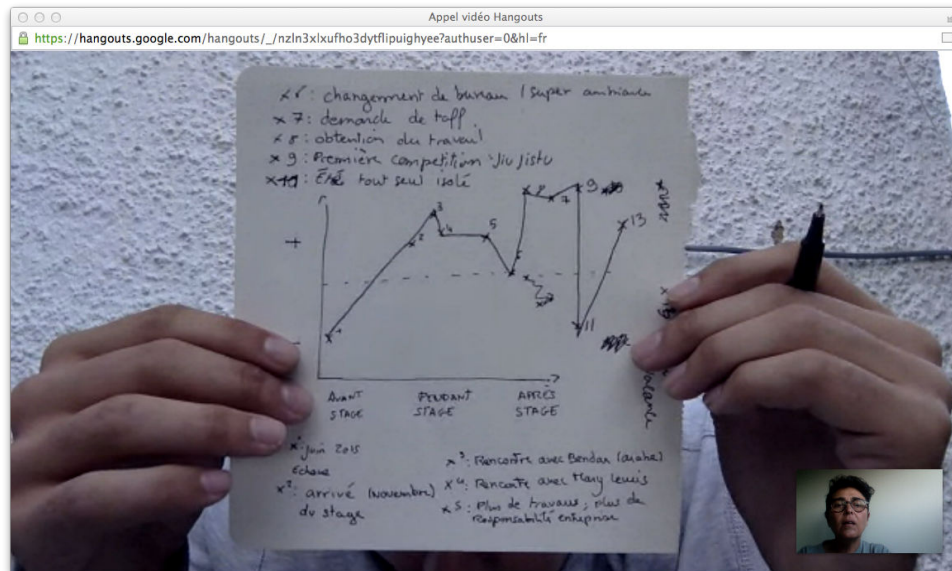 Appel vidéo Hangouts
https://hangouts.google.com/hangouts/_/nzln3xlxufho3dytflipuighyee?authuser=0&hl=fr
x 6: changement de bureau / super ambiance
x 7: demande de taff
x 8: obtention du travail
x 9: Première competition Jiu jistu
Été tout seul isolé
3
9
13
+
2
4
5
8
7
6
1
11
-
AVANT PENDANT APRÈS
STAGE STAGE STAGE
vacance
x¹: juin 2015
Echave
x²: arrivé (novembre)
du stage
x³: Rencontre avec Bendan (arabe)
x⁴: Rencontre avec Mary Lewis
x⁵: Plus de travaux, plus de
Responsabilité entreprise